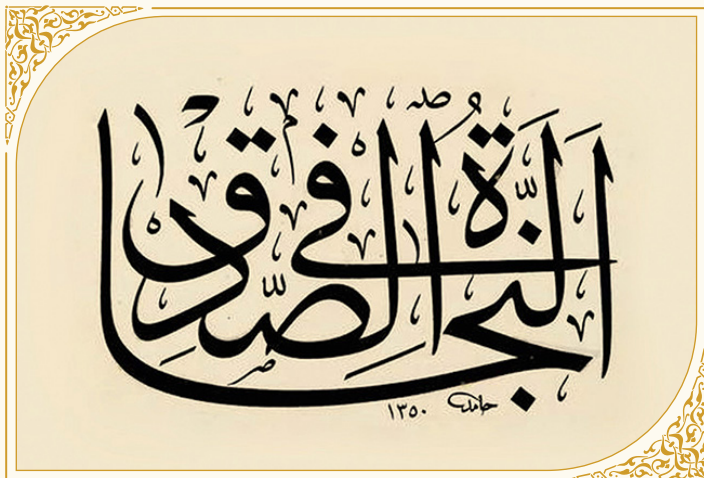 النَّجَاةُ فِي الصِّدْقِ
حامد ١٣٥٠